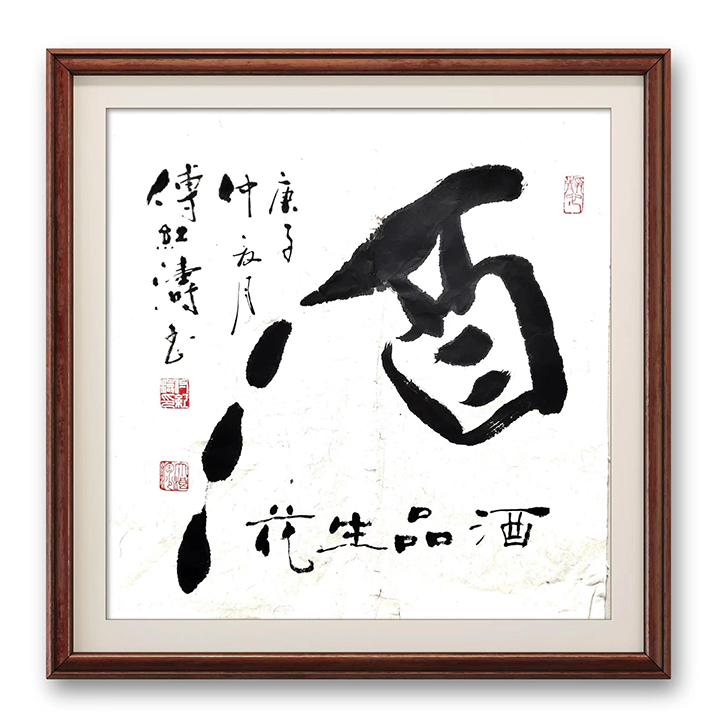 酒
酒品生花
庚子
仲夏月
傅紅濤书